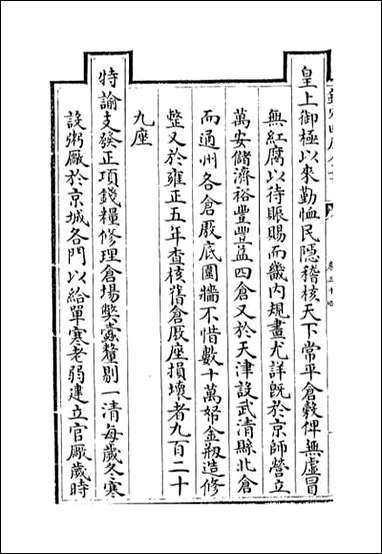 皇上御極以來勤恤民隱稽核天下常平倉穀俾無虛冒
無紅腐以待賑賜而畿内規畫尤詳既於京師營立
萬安儲濟裕豐豐益四倉又於天津設武清縣北倉
而通州各倉厫底圍牆不惜數十萬帑金剏造修
整又於雍正五年查核舊倉厫座損壞者九百二十
九座
特諭支發正項錢糧修理倉場獘蠧釐剔一清每歲冬寒
設粥厰於京城各門以給單寒老弱建立官厰歲時